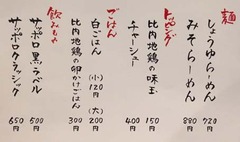 麺
しょうゆらーめん 720円
みそらーめん 880円
トッピング
比内地鶏の味玉 150円
チャーシュー 400円
ごはん
白ごはん (小)120円 (大)200円
比内地鶏の卵かけごはん 300円
飲みもの
サッポロ黒ラベル 500円
サッポロクラシック 650円